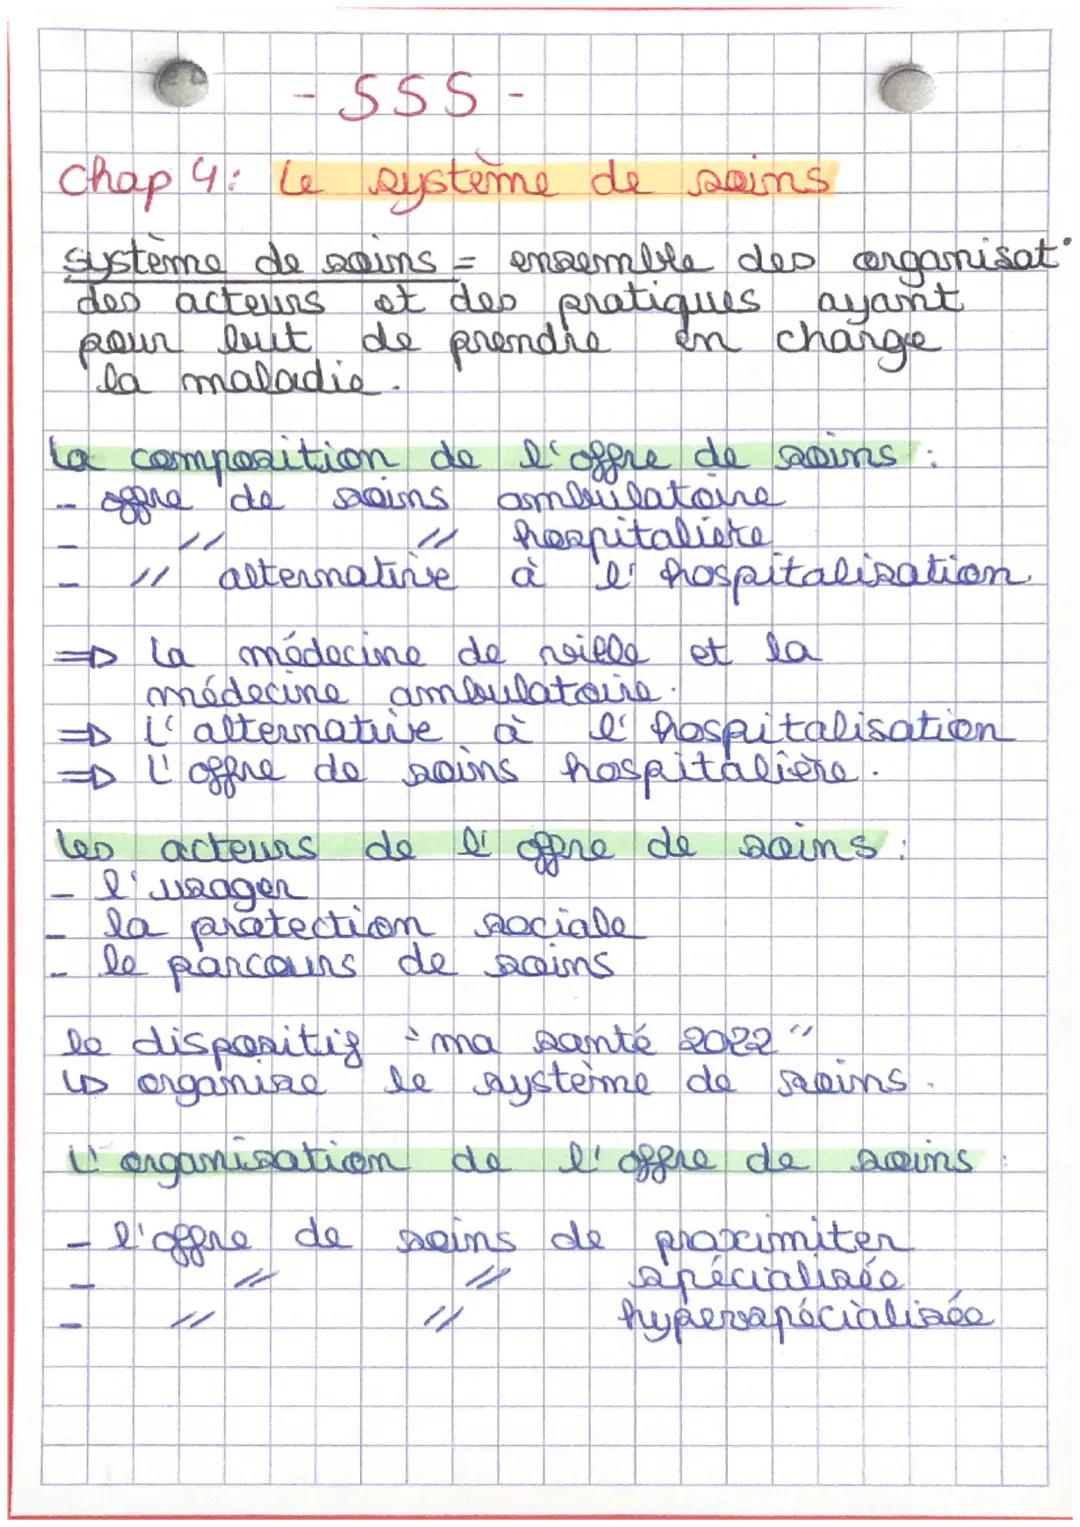 - SSS -
Chap 4: Le système de soins
système de soins = ensemble des organisat°
des acteurs et des pratiques ayant
pour but de prendre en charge
la maladie.
La composition de l'offre de soins :
- offre de soins ambulatoire
- // // hospitalière
- // alternative à l'hospitalisation.
=> La médecine de ville et la
médecine ambulatoire.
=> L'alternative à l'hospitalisation
=> L'offre de soins hospitalière.
Les acteurs de l'offre de soins :
- l'usager
- la protection sociale
- le parcours de soins
le dispositif "ma santé 2022"
↳ organise le système de soins.
L'organisation de l'offre de soins :
- l'offre de soins de proximiter
- // // spécialisée
- // // hyperspécialisée